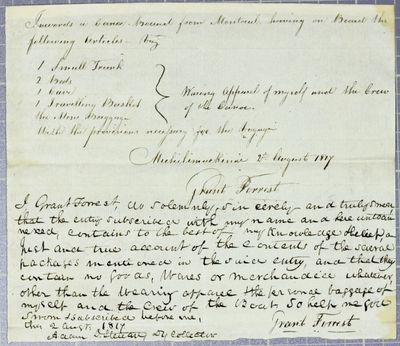 Inwards a Canoe Bound from Montreal having on Board the
following Articles
1 Small Trunk
2 Beds
1 Cave
1 Travelling Basket
Wearing Apparel of myself and the Crew
of the Canoe.
the Mens Baggage
With the provisions necessary for the Voyage
Michilimackinac 2d August 1817
Grant Forrest
I Grant Forrest, do solemnly, sincerely and truly swear
that the entry subscribed with my name and hereunto an
nexed, contains to the best of my Knowledge & belief a
Just and true account of the Contents of the several
packages mentioned in the said entry, and that they
contain no goods, Wares or merchandize whatever
other than the Wearing apparel & the personal baggage of
myself and the Crew of the Boat. So help me god
Sworn & subscribed before me,
this 2 augt. 1817
Grant Forrest
Adam D. Steuart Dy Collector